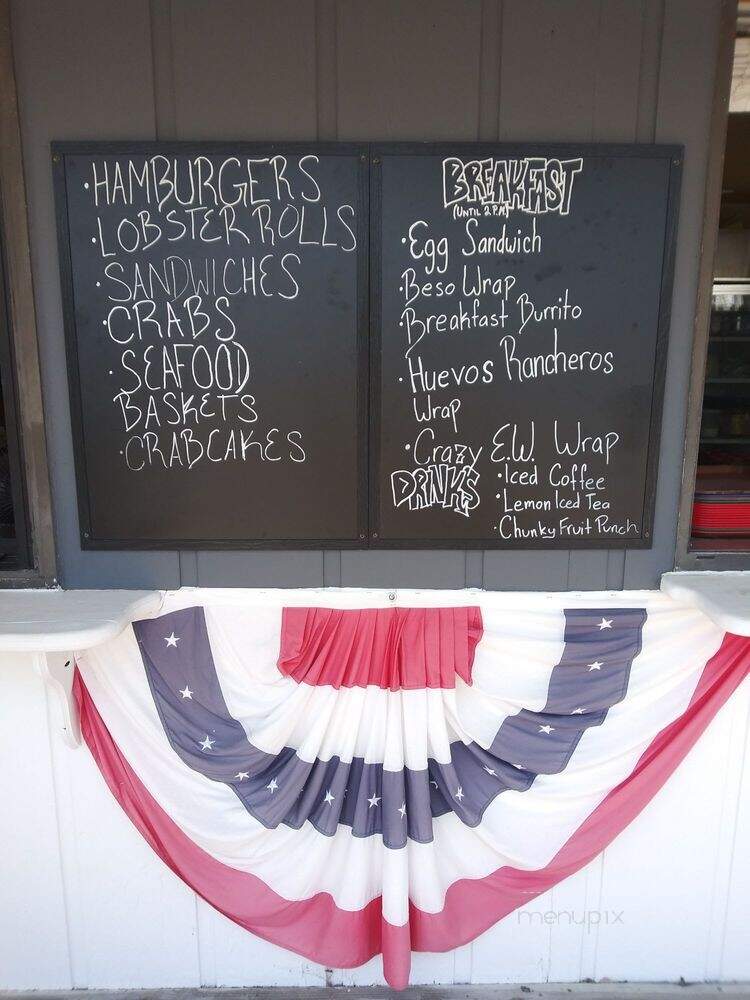 ·HAMBURGERS
·LOBSTER ROLLS
·SANDWICHES
·CRABS
·SEAFOOD
BASKETS
·CRABCAKES
BREAKFAST
(UNTIL 2 P.M)
·Egg Sandwich
·Beso Wrap
·Breakfast Burrito
·Huevos Rancheros
Wrap
·Crazy E.W. Wrap
DRINKS
·Iced Coffee
·Lemon Iced Tea
·Chunky Fruit Punch
menupix